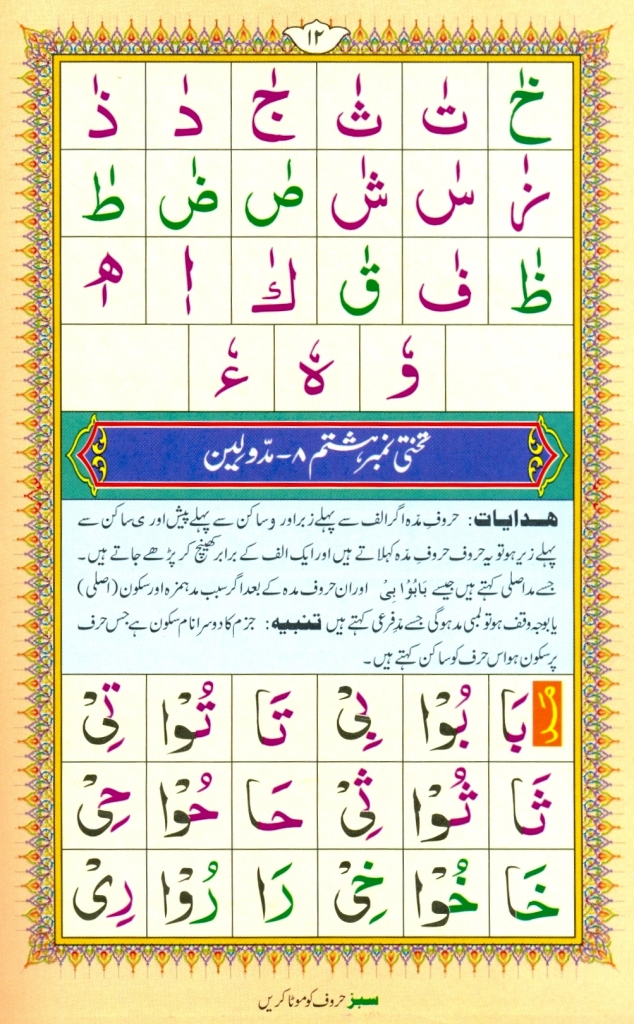 ١٢
خٰ تٰ ثٰ جٰ دٰ ذٰ
زٰ سٰ شٰ صٰ ضٰ طٰ
ظٰ فٰ قٰ كٰ اٖ هٖ
وٗ هٗ ءٗ
تختی نمبر ہشتم ۸ - مدّولین
ھدایات: حروفِ مدہ اگر الف سے پہلے زبر اور و ساکن سے پہلے پیش اور ی ساکن سے
پہلے زیر ہو تو یہ حروف حروفِ مدہ کہلاتے ہیں اور ایک الف کے برابر کھینچ کر پڑھے جاتے ہیں۔
جسے مد اصلی کہتے ہیں جیسے بَا بُوْا بِیْ اور ان حروف مدہ کے بعد اگر سبب مد ہمزہ اور سکون (اصلی)
یا بوجہ وقف ہو تو لمبی مد ہوگی جسے مدِ فرعی کہتے ہیں تنبیہ: جزم کا دوسرا نام سکون ہے جس حرف
پر سکون ہو اس حرف کو ساکن کہتے ہیں۔
مدہ بَا بُوْا بِیْ تَا تُوْا تِیْ
ثَا ثُوْا ثِیْ حَا حُوْا حِیْ
خَا خُوْا خِیْ رَا رُوْا رِیْ
سبز حروف کو موٹا کریں